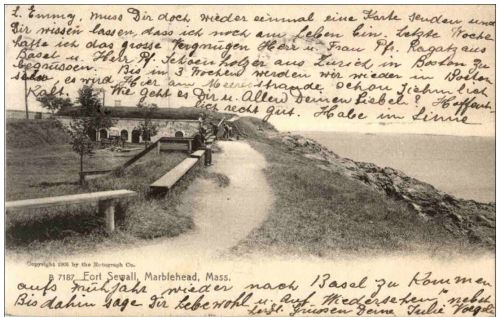 L. Emmy, muss Dir doch wieder einmal eine Karte senden und
Dir wissen lassen, dass ich noch am leben bin. Letzte Woche
hatte ich das grosse Vergnügen Herr u. Frau Pf. Ragatz aus
Basel u. Herr Pf. Schoenholzer aus Zürich in Boston zu
begrüssen. Bis in 3 Wochen werden wir wieder in Boston
sein, es wird Hier am Meeresstrande, schon ziehmlich
Kalt. Wie geht es Dir u. Allen Deinen Lieben? Hoffent-
lich recht gut. Habe im Sinne
Copyright 1905 by the Rotograph Co.
B 7187 Fort Sewall, Marblehead, Mass.
aufs Frühjahr wieder nach Basel zu Kommen
Bis dahin sage Dir Lebewohl u. Auf Wiedersehen" nebst
herzl. Grüssen Deine Julie